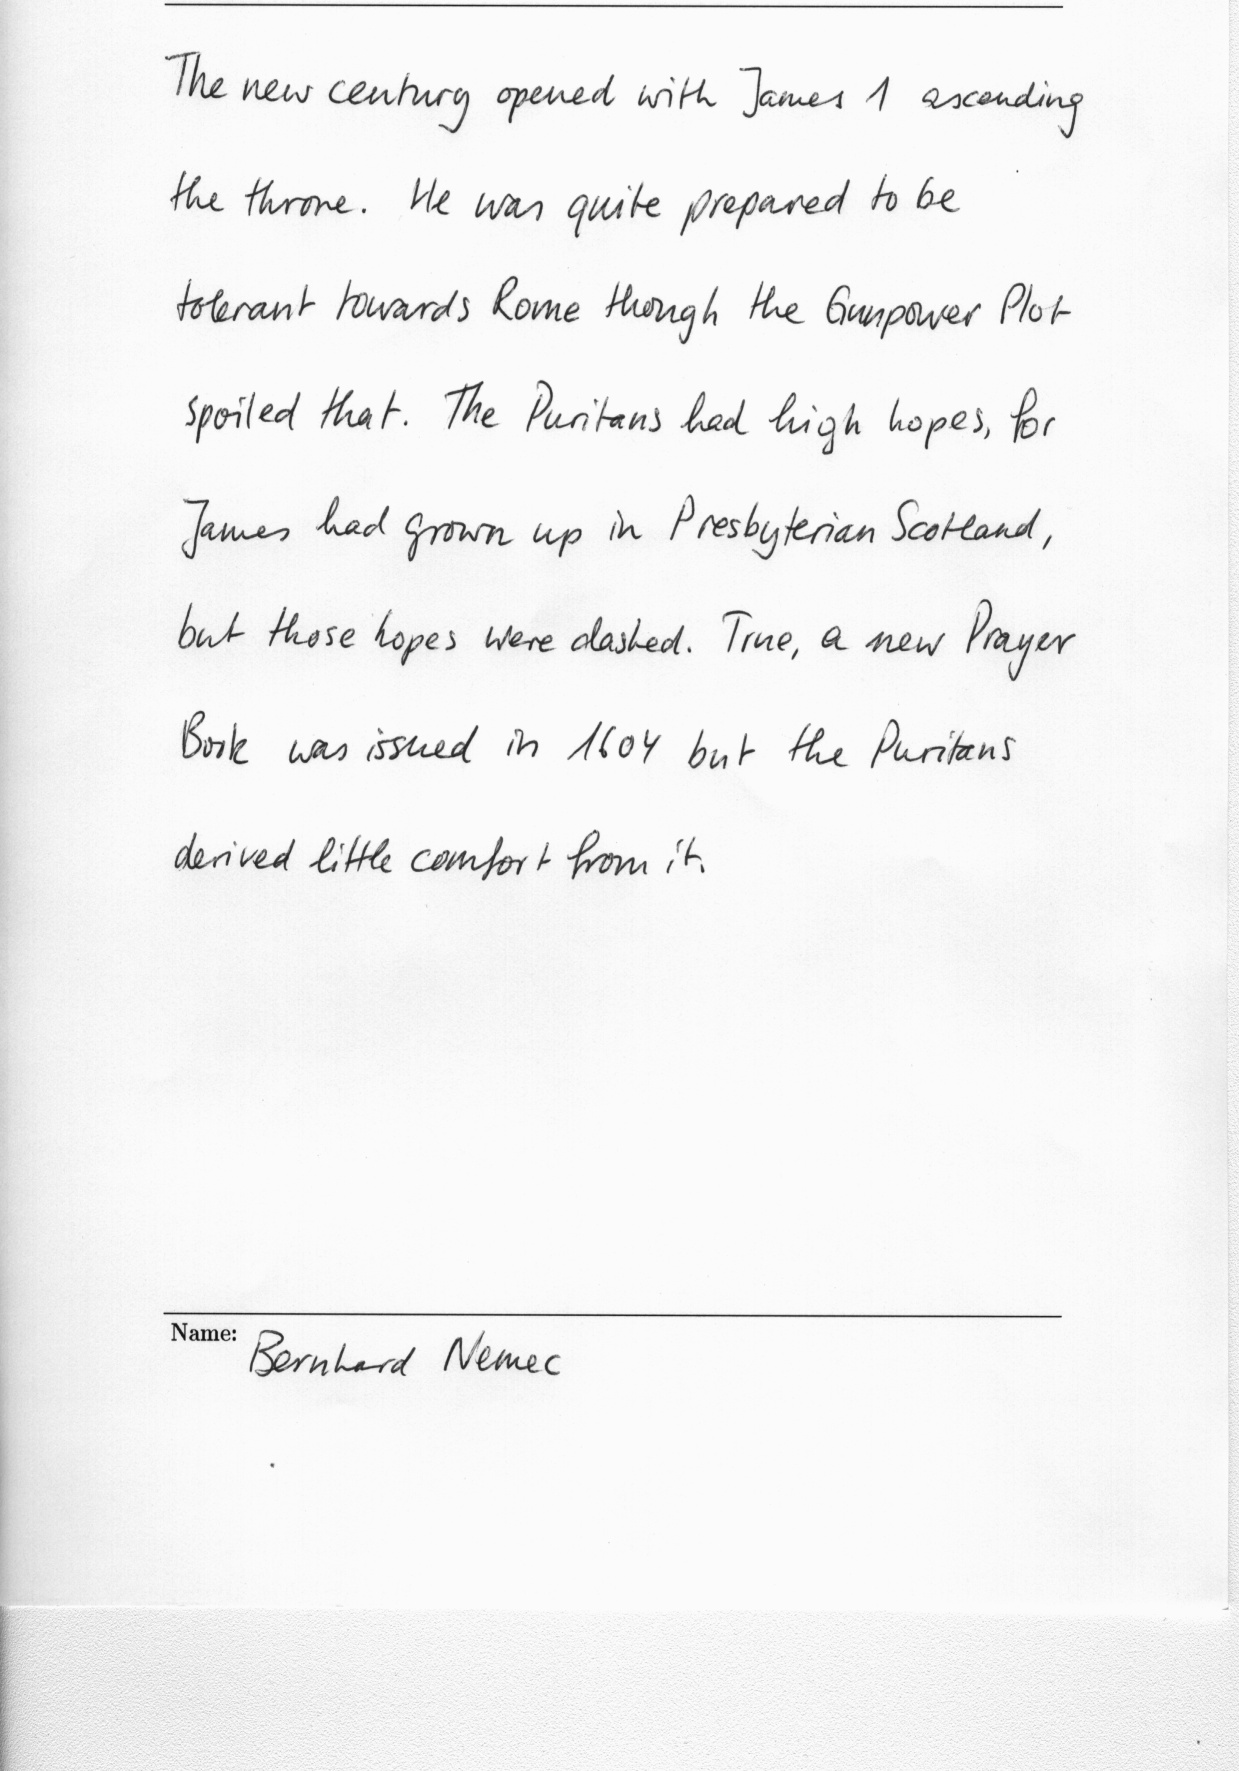 The new century opened with James 1 ascending
the throne. He was quite prepared to be
tolerant towards Rome though the Gunpower Plot
spoiled that. The Puritans had high hopes, for
James had grown up in Presbyterian Scotland,
but those hopes were dashed. True, a new Prayer
Book was issued in 1604 but the Puritans
derived little comfort from it.
Name: Bernhard Nemec